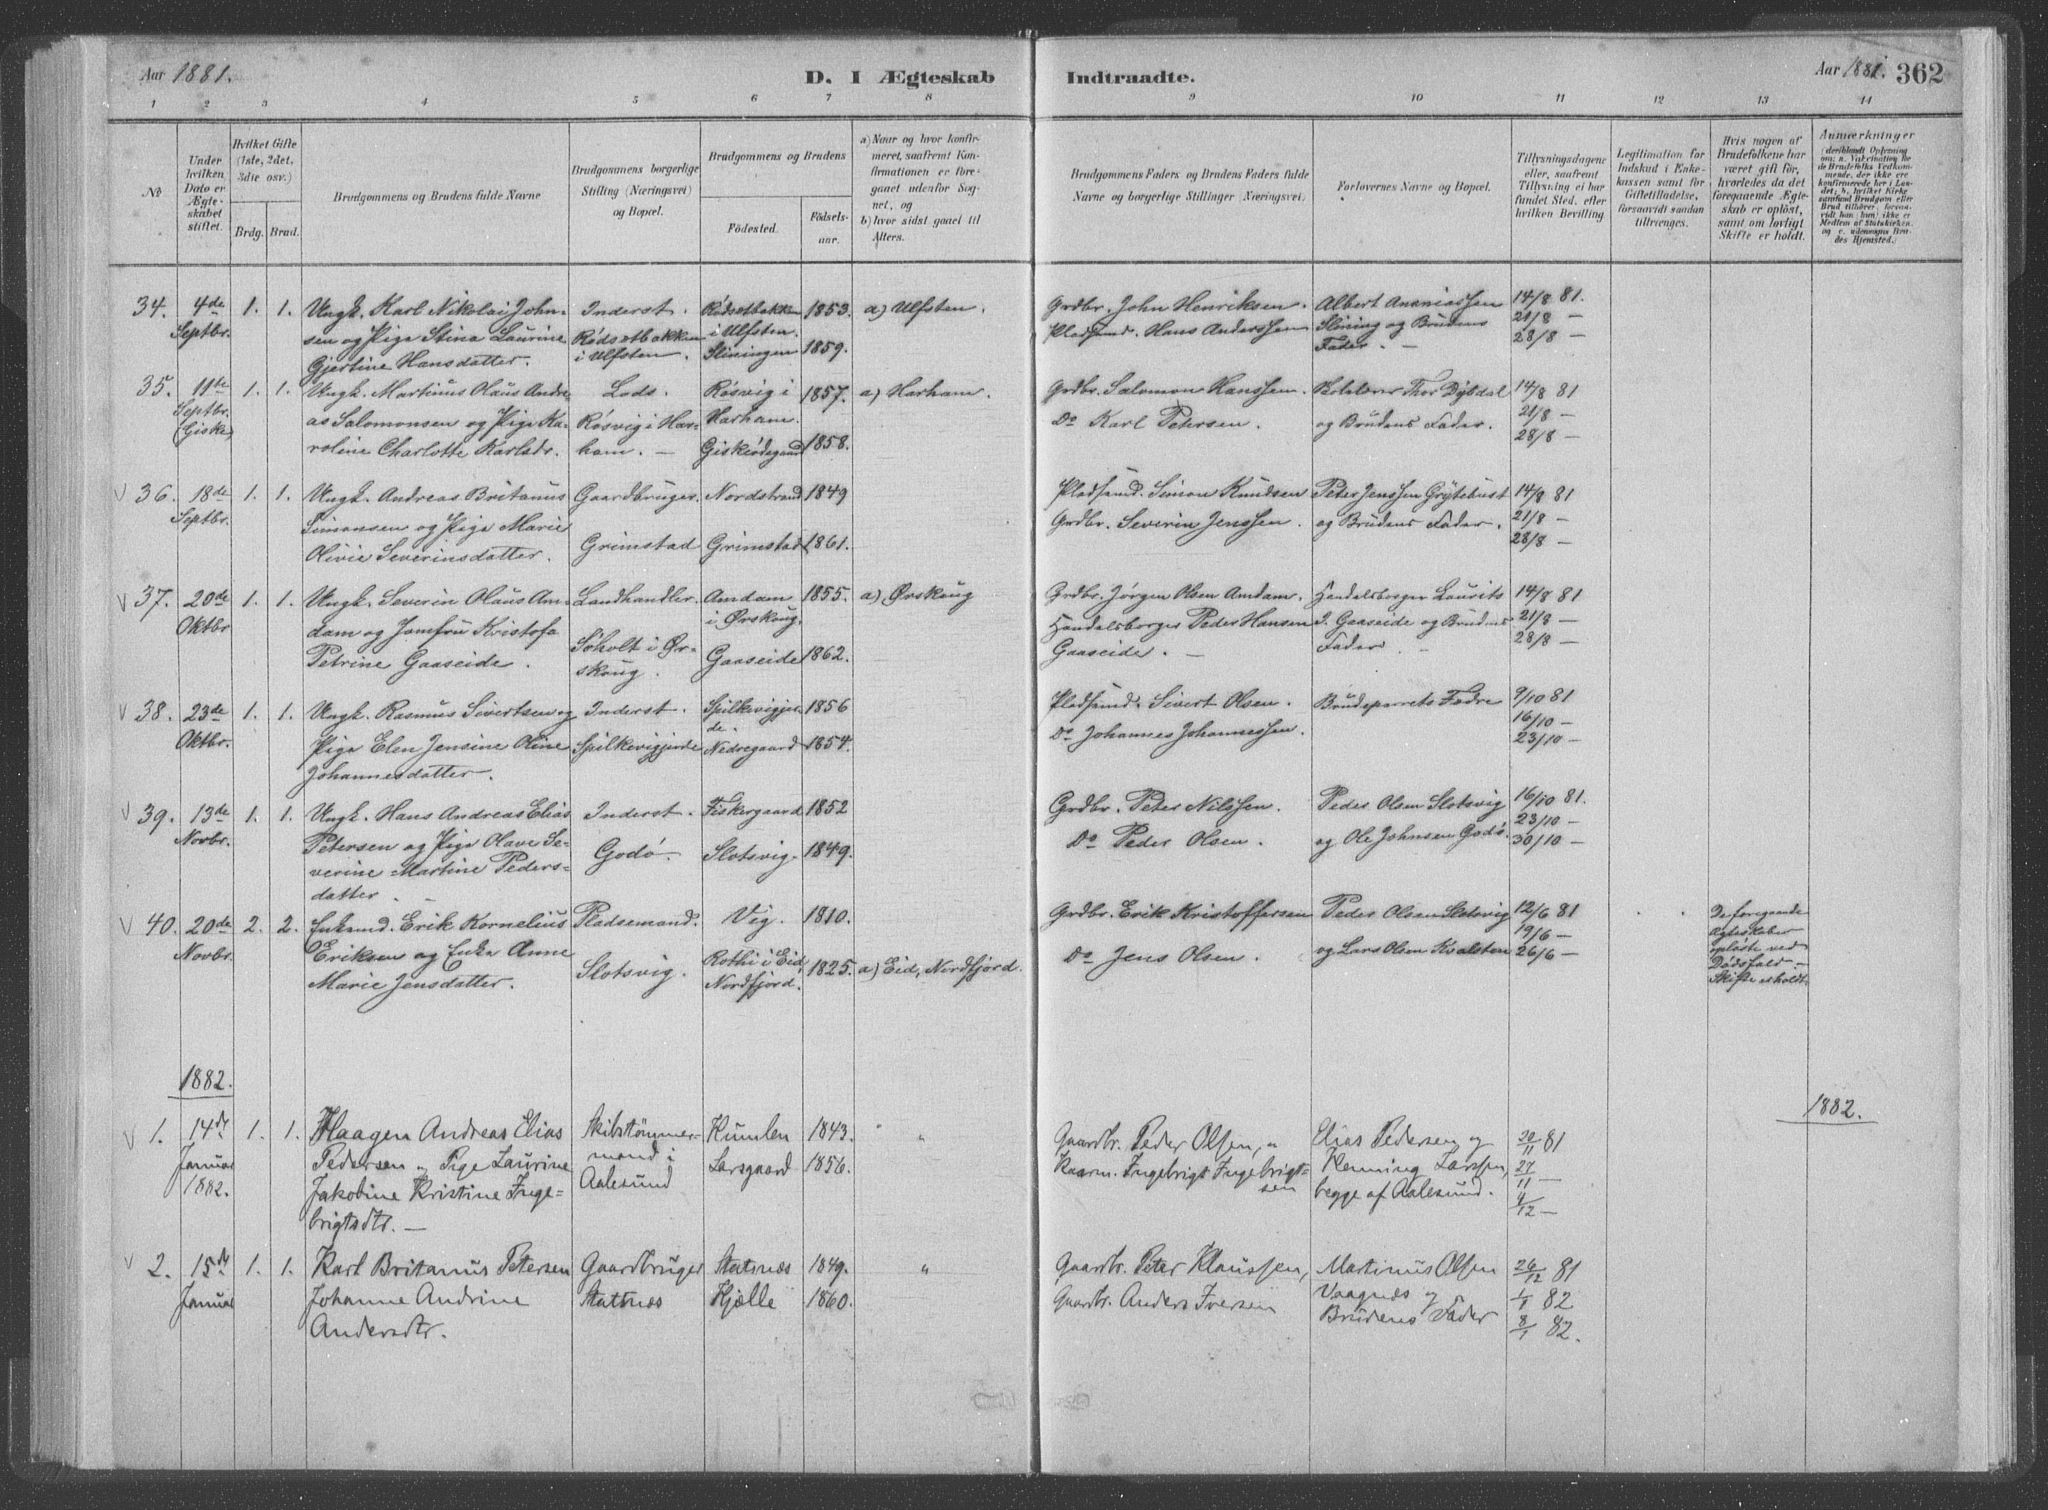 Aar 1881.
D. I Ægteskab
Indtraadte.
Aar 1881. 362
1 2 3 4 5 6 7 8 9 10 11 12 13 14
No
Under hvilken Dato er Ægteskabet stiftet.
Hvilket Gifte (1ste, 2det, 3die osv.)
Brdg. Brud.
Brudgommens og Brudens fulde Navne
Brudgommens borgerlige Stilling (Næringsvei) og Bopæl.
Brudgommens og Brudens
Fødested.
Fødselsaar.
a) Naar og hvor konfirmeret, saafremt Konfirmationen er foregaaet udenfor Sognet, og
b) hvor sidst gaaet til Alters.
Brudgommens Faders og Brudens Faders fulde Navne og borgerlige Stillinger (Næringsvei)
Forlovernes Navne og Bopæl.
Tillysningsdagene eller, saafremt Tillysning ei har fundet Sted, efter hvilken Bevilling
Legitimation for Indskud i Enkekassen samt for Giftetilladelse, forsaavidt saadan tiltrænges.
Hvis nogen af Brudefolkene har været gift før, hvorledes da det foregaaende Ægteskab er opløst, samt om lovligt Skifte er holdt.
Anmærkninger
34. 4de Septbr. 1. 1.
Ungk. Karl Nikolai Johnsen og Pige Stina Laurine Gjertine Hansdatter.
Inderst. Rødsetbakken i Ulfsten.
Rødsetbakken i Ulfsten. 1853. Sliningen 1859.
a) Ulfsten.
Grdbr. John Henriksen.
Pladsmd. Hans Anderssen
Albert Ananiassen Slining og Brudens Fader. -
14/8 81.
21/8 -
28/8 -
35. 11te Septbr. (Giske) 1. 1.
Ungk. Martinus Olaus Andreas Salomonsen og Pige Karoline Charlotte Karlsdr.
Lods. Røsvig i Harham. -
Røsvig i Harham. 1857. Giskeødegaard 1858.
a) Harham.
Grdbr. Salomon Hanssen.
Do Karl Petersen.
Thor Dybdal og Brudens Fader.
14/8 81
21/8 -
28/8 -
V 36. 18de Septbr. 1. 1.
Ungk. Andreas Britanus Simonsen og Pige Marie Olivie Severinsdatter.
Gaardbruger. Grimstad
Nordstrand 1849 Grimstad 1861.
Pladsmd. Simon Knudsen
Grdbr. Severin Jenssen.
Peter Jenssen Grytebust og Brudens Fader.
14/8 81
21/8 -
28/8 -
V 37. 20de Oktbr 1. 1.
Ungk. Severin Olaus Amdam og Jomfru Kristofa Petrine Gaaseide.
Landhandler. Søholt i Ørskoug.
Amdam i Ørskoug. 1855. Gaaseide 1862.
a) Ørskoug
Grdbr. Jørgen Olsen Amdam.
Handelsborger Peder Hansen Gaaseide. -
Handelsborger Laurits J. Gaaseide og Brudens Fader. -
14/8 81
21/8 -
28/8 -
V 38. 23de Oktbr. 1. 1.
Ungk. Rasmus Sivertsen og Pige Elen Jensine Oline Johannesdatter.
Inderst. Spilkevigjerde
Spilkevigjerde. 1856 Nedregaard 1854.
Pladsmd. Sivert Olsen.
Do Johannes Johannessen.
Brudeparrets Fædre
9/10 81
16/10 -
23/10 -
V 39. 13de Novbr. 1. 1.
Ungk. Hans Andreas Elias Petersen og Pige Olave Severine Martine Pedersdatter.
Inderst. Godø.
Fiskergaard 1852 Slotsvig. 1849.
Grdbr. Peter Nilssen.
Do Peder Olsen.
Peder Olsen Slotsvig og Ole Johnsen Godø.
16/10 81.
23/10 -
30/10 -
V 40. 20de Novbr. 2. 2.
Enkemd. Erik Kornelius Eriksen og Enke Anne Marie Jensdatter.
Pladsemand. Slotsvig.
Vig. 1810. Rothi i Eid, Nordfjord. 1825.
a) Eid, Nordfjord.
Grdbr. Erik Kristoffersen
Do Jens Olsen.
Peder Olsen Slotsvig og Lars Olsen Kvalsten
12/6 81
19/6 -
26/6 -
De foregaaende Ægteskaber opløste ved Dødsfald - Skifte er holdt.
1882.
1882.
V 1. 14de Januar 1882. 1. 1.
Haagen Andreas Elias Pedersen og Pige Laurine Jakobine Kristine Ingebrigtsdtr. -
Skibstømmermand i Aalesund
Humlen 1843. Larsgaard 1856.
"
Gaardbr. Peder Olsen, "
Ingebrigt Ingebrigtsen
Elias Pedersen og Henning Larssen, begge af Aalesund.
20/11 81
27/11 -
4/12 -
V 2. 15de Januar 1. 1.
Karl Britanus Petersen
Johanne Andrine Andersdtr.
Gaardbruger Statnæs
Statnæs 1849. Hjelle 1860.
"
Gaardbr. Peter Klaussen,
Gaardbr. Anders Iversen
Martinus Olsen Vaagnæs og Brudens Fader
26/12 81
1/1 82
8/1 82.